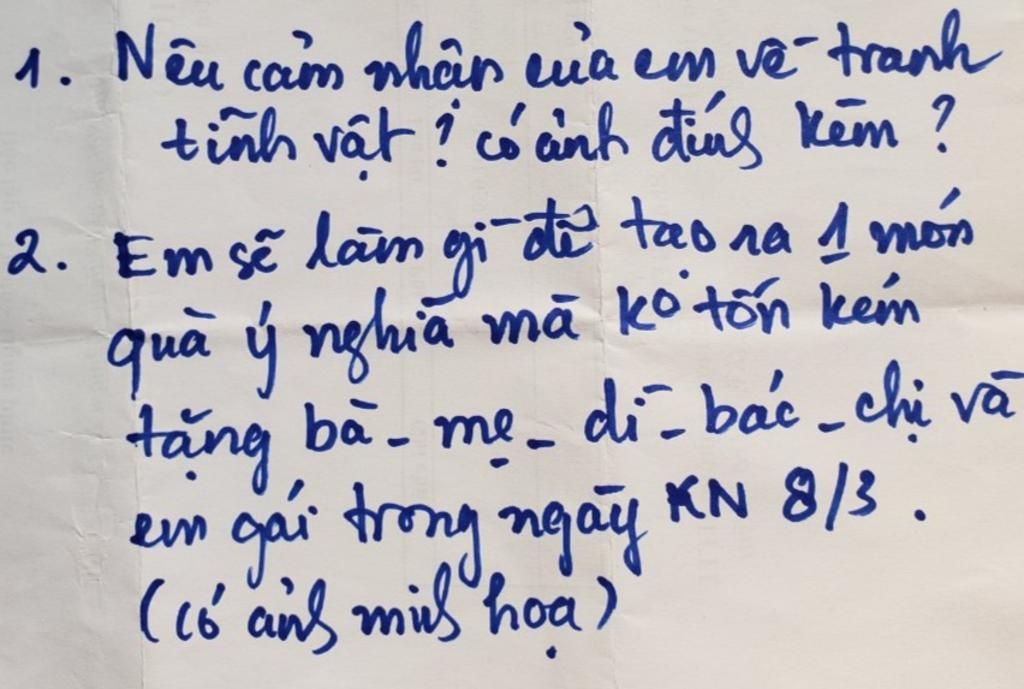 1. Nêu cảm nhận của em về tranh
tĩnh vật? có ảnh đính kèm?
2. Em sẽ làm gì để tạo ra 1 món
quà ý nghĩa mà ko tốn kém
tặng bà - mẹ - dì - bác - chị và
em gái trong ngày KN 8/3.
(có ảnh minh họa)